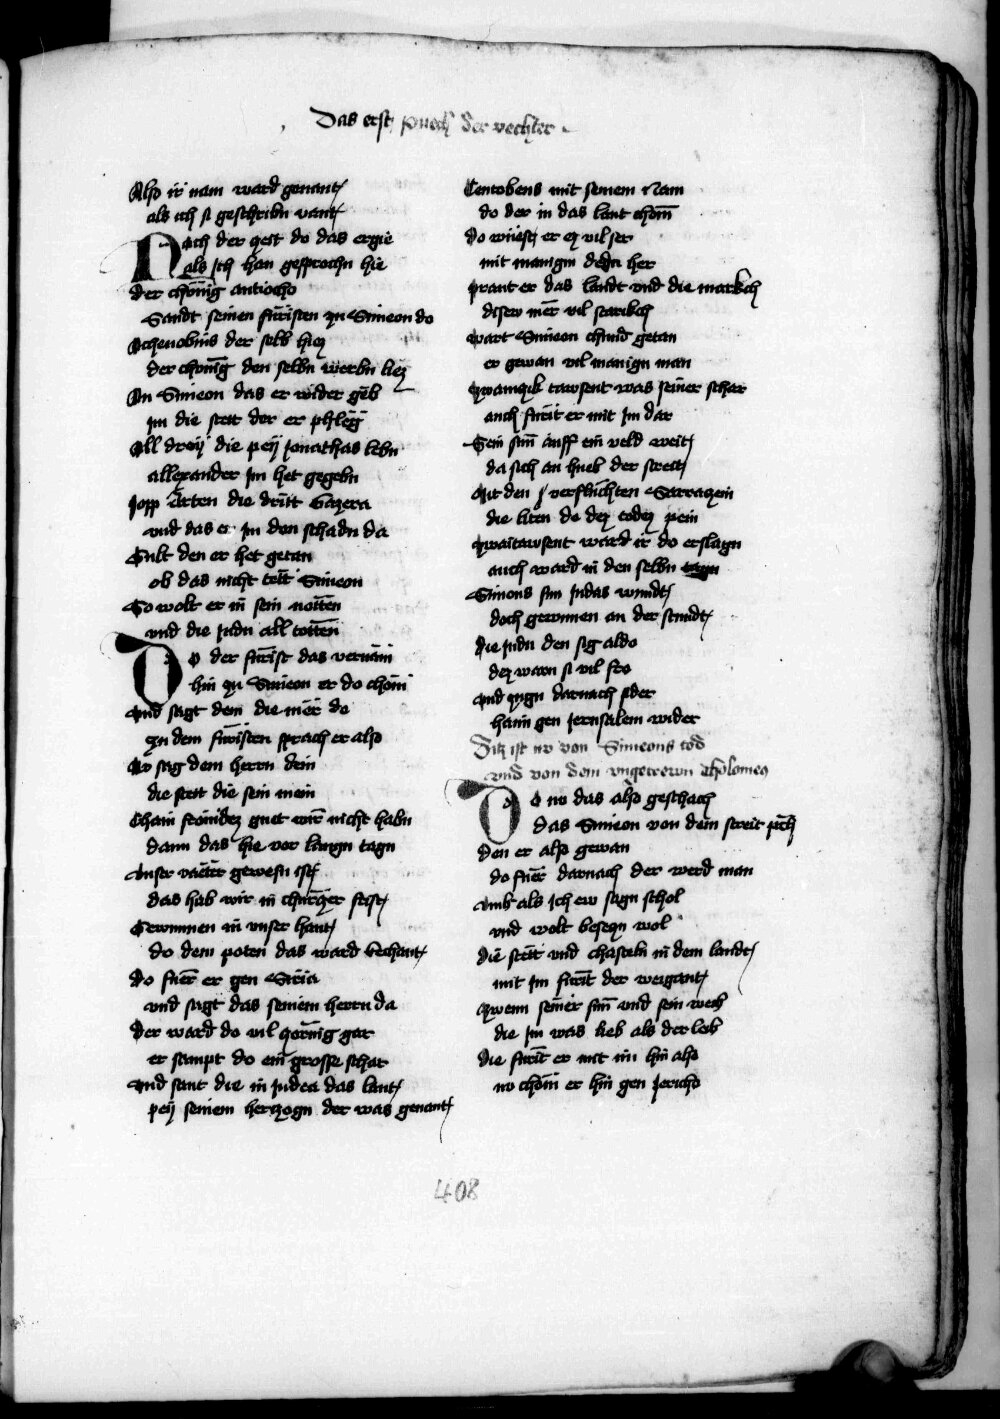 Das erst puech der vechter
Also ir nam ward genant
als ich si geschribn vant
Nach der zeit do das ergie
als ich han gesprochn hie
der chönig antiocho
Sandt seinen füristen zu Simeon do
Achenobius der selb hiez
der chönig den selbn werbn liez
An Simeon das er wider geb
im die stett der er phleg
All dreÿ die peÿ Jonathas lebn
allexander im het gegebn
Jopp Arten die dritt Gazera
vnd das er im den schadn da
Gult den er het getan
ob das nicht tett Simeon
So wolt er in sein notten
vnd die Judn all totten
Do der fürist das vernam
hin zu Simeon er do chom
vnd sagt dem die mer do
zu dem füristen sprach er also
Nv sag dem herrn dein
die stett die sein mein
Chain frömdez guet wir nicht habn
dann das hie vor langn tagn
Vnser väter gewesn ist
das hab wir in churzer frist
Gewunnen in vnser hant
do dem poten das ward bechant
do fuer er gen Siria
vnd sagt das seinem herrn da
der ward do vil zornig gar
er sampt do ein grosse schar
vnd sant die in Judea das lant
peÿ seinem herczogn der was genant
Centobeus mit seinem nam
do der in das lant chom
do wüest er ez vil ser
mit manigm dedn her
prant er das landt vnd die markch
disew mer vil starkch
Wart Simeon chund getan
er gewan vil manign man
zwainzik tawsent was seiner schar
auch fürt er mit im dar
Sein sün auff ein veld weit
da sich an hueb der streit
Mit den verfluchten Sarrazein
die liten do dez todez pein
zwaitawsent ward ir do erslagn
auch ward in den selbn tagn
Simons sun Judas wundt
doch gewunnen an der stundt
die Judn den sig aldo
dez warn si vil fro
vnd zugn darnach sider
haim gen Jerusalem wider
Ditz ist nv von Simeons tod
vnd von dem vngetrewn tholomeo
Do nv das also geschach
das Simeon von dem streit
den er also gewan
do fuer darnach der werd man
vmb als ich ew sagn schol
vnd wolt besegn wol
die stett vnd chasteln in dem landt
mit im fürt der weigant
zwenn seiner sün vnd sein weib
die im was lieb als der leib
die fürt er mit im hin also
nv chom er hin gen Jericho
408